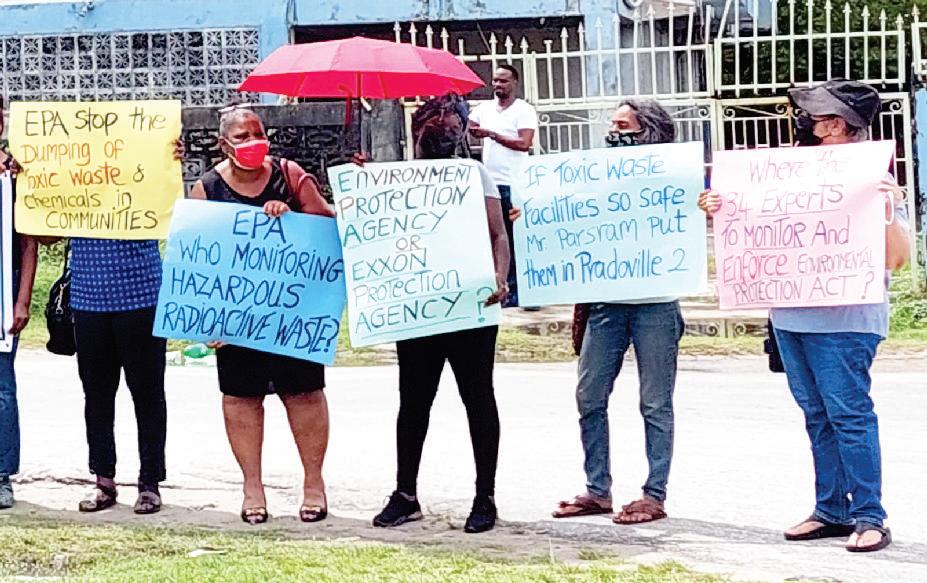 EPA STOP the
DUMPING OF
Toxic WASTE &
CHEMICALS IN
COMMUNITIES
EPA
WHO MONITORING
HAZARDOUS
RADIOACTIVE WASTE?
ENVIRONMENT
PROTECTION
AGENCY
OR
EXXON
PROTECTION
AGENCY ?
IF TOXIC WASTE
Facilities so safe
Mr. Parsram Put
them in Pradoville 2
Where the
34 Experts
To Monitor And
Enforce ENVIRONMENTAL
PROTECTION ACT ?